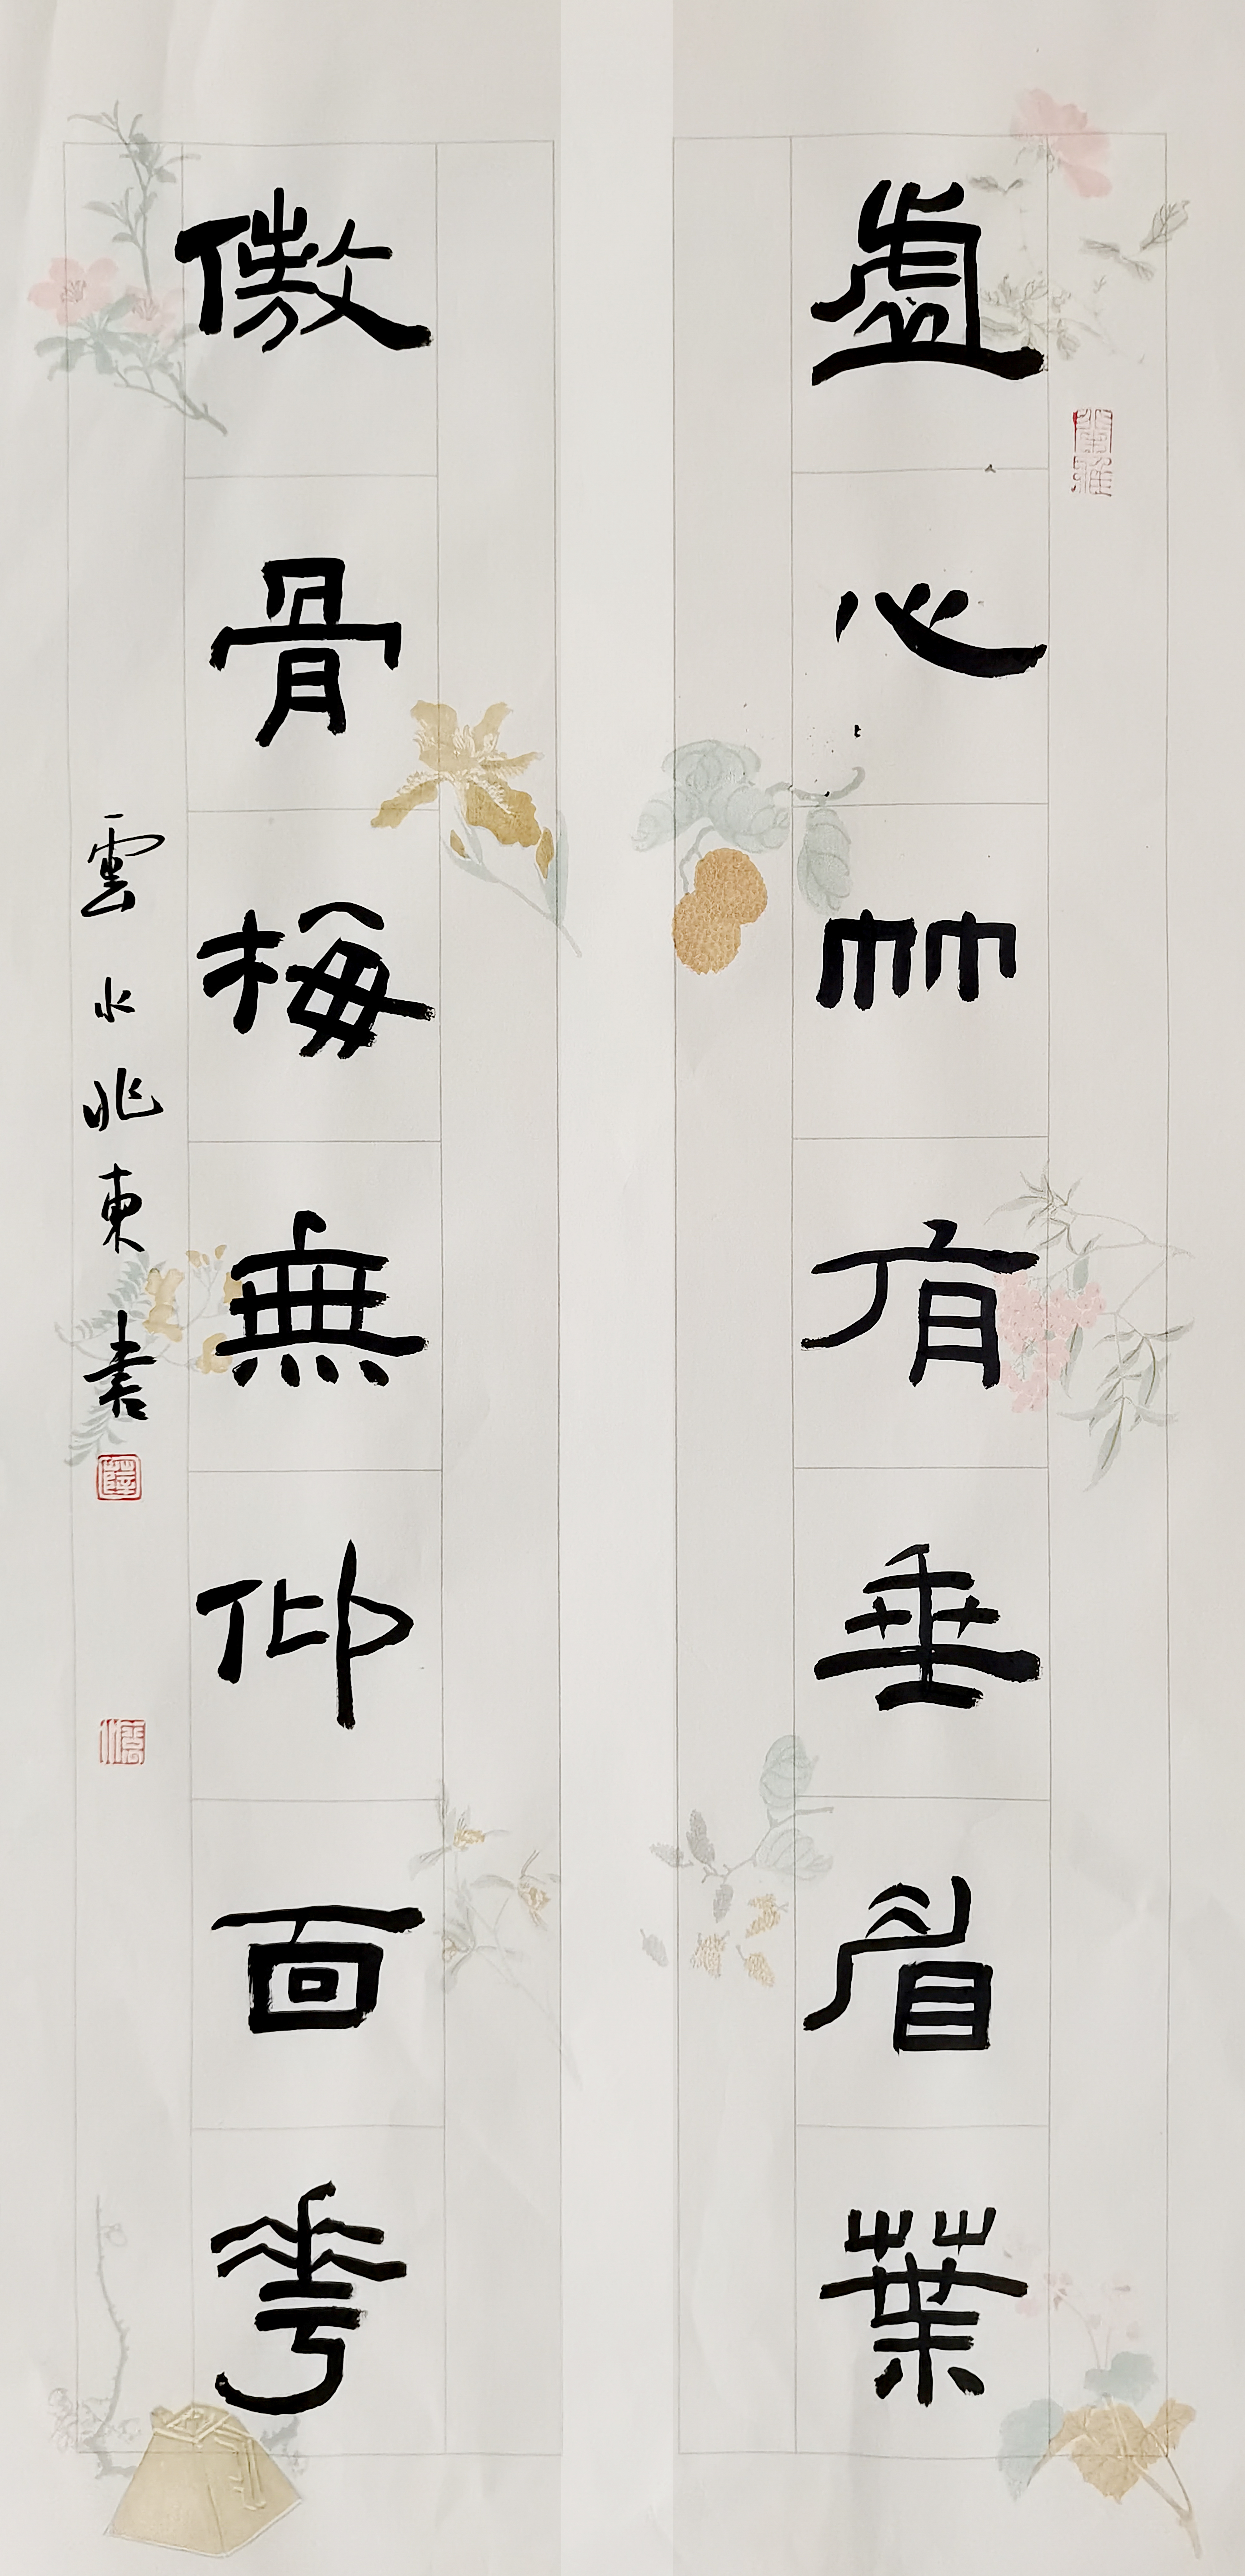 虛心竹有垂眉葉
傲骨梅無仰面花
雲水兆東書